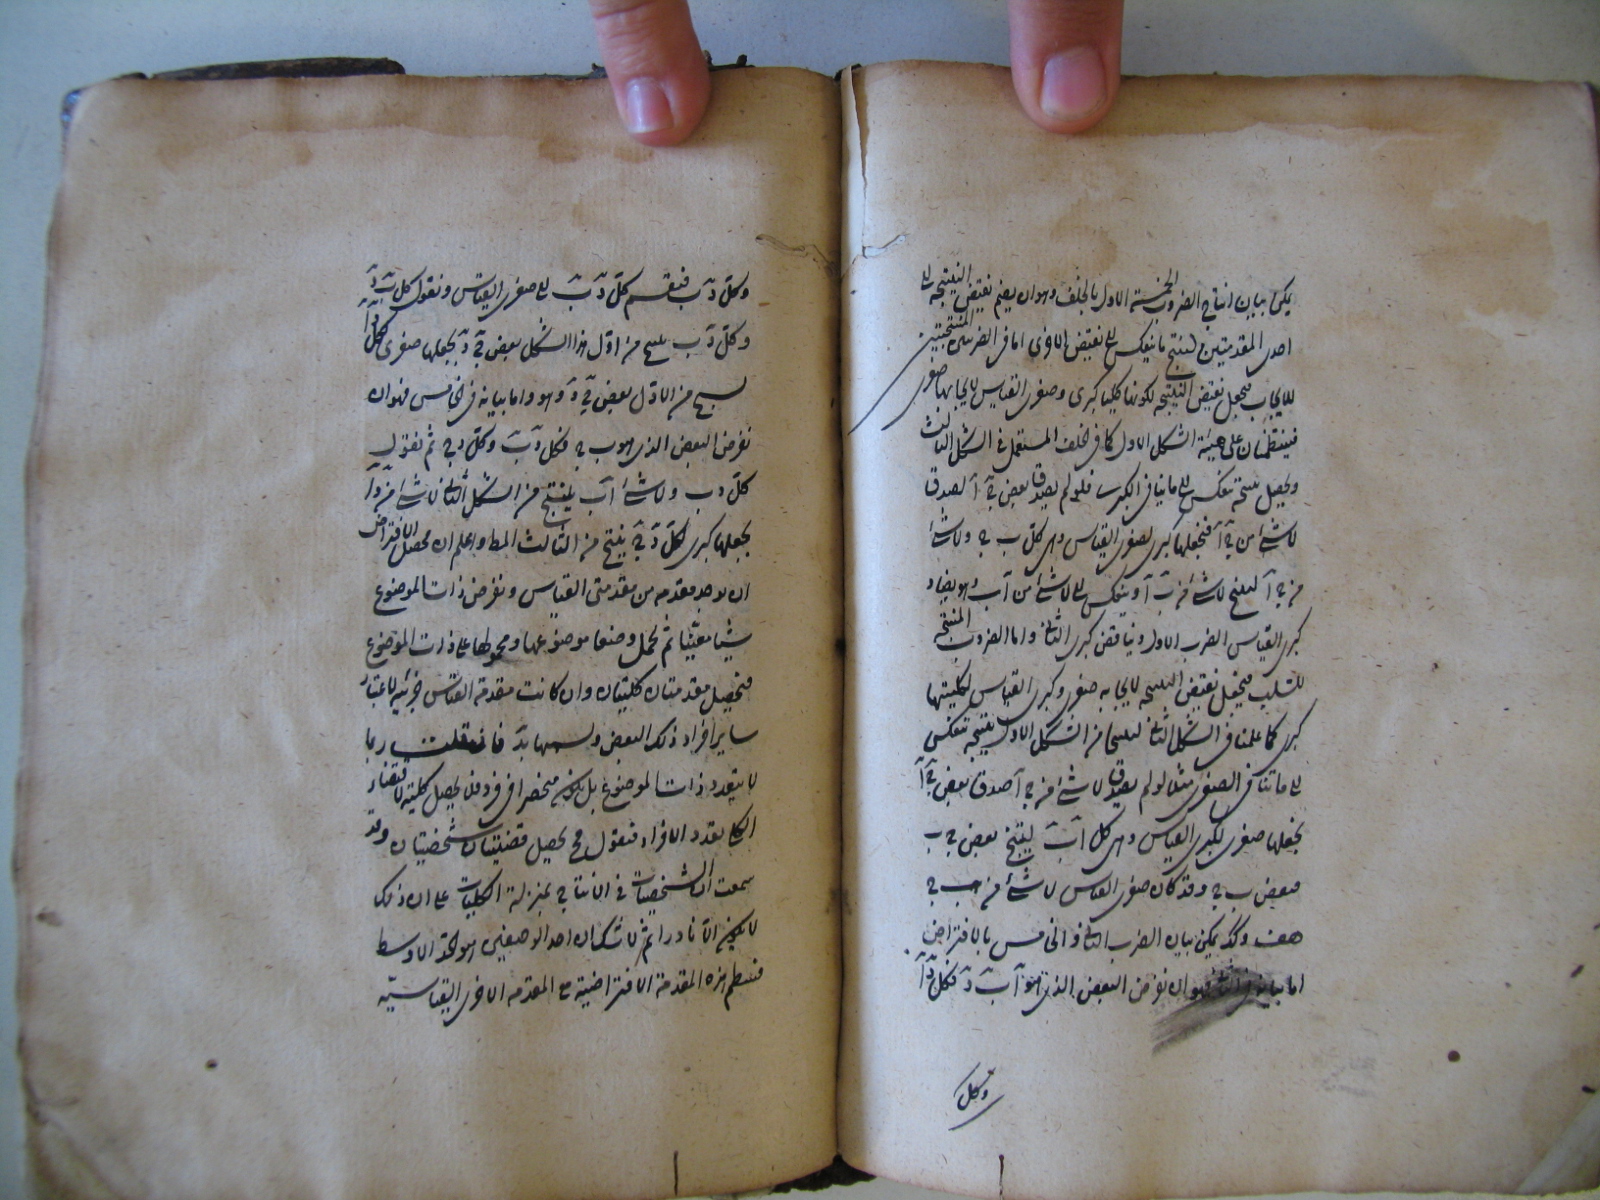 يمكن بيان انتاج الضروب الخمسة الاول بالخلف وهو ان يضم نقيض النتيجة الى
احدى المقدمتين لينتج ما ينعكس الى نقيض الاخرى اما في الضربين المنتجين
للايجاب فيجعل نقيض النتيجة لكونها كليا كبرى وصغرى القياس لايجابها صغرى
فينتظمان على هيئة الشكل الاول كما في الخلف المستعمل في الشكل الثالث
ويحصل نتيجة تنعكس الى ما ينافي الكبرى فلو لم يصدق بعض ج آ لصدق
لا شئ من ج آ فنجعلها كبرى لصغرى القياس وهى كل ب ج ولا شئ
من ج آ لينتج لا شئ من ب آ وينعكس الى لا شئ من آ ب وهو يضاد
كبرى القياس الضرب الاول ويناقض كبرى الثاني واما الضروب المنتجة
للسلب فيجعل نقيض النتيجة لايجابه صغرى وكبرى القياس لكليتها
كبرى كما علمنا في الشكل الثاني لينتجا من الشكل الاول نتيجة تنعكس
الى ما ينافى الصغرى مثلا لو لم يصدق لا شئ من ج آ صدق بعض ج آ
نجعلها صغرى لكبرى القياس وهى كل آ ب لينتج بعض ج ب
فبعض ب ج وقد كان صغرى القياس لا شئ من ب ج
هف وقد يمكن بيان الضرب الثاني والخامس بالافتراض
اما بيانه في الثاني فهو ان نفرض البعض الذي هو آ ب د فكل د آ
وكل
وكل د ب فنضم كل د ب الى صغرى القياس ونقول كل ب ج
وكل د ب ينتج من اول هذا الشكل بعض ج د نجعلها صغرى لكل د آ
لينتج من الاول بعض ج آ وهو واما بيانه في الخامس فهو ان
نفرض البعض الذي هو ب ج د فكل د ب وكل د ج ثم نقول
كل د ب ولا شئ آ ب ينتج من الشكل الثاني لا شئ من د آ
نجعلها كبرى لكل د ج ينتج من الثالث المط واعلم ان محصل الافتراض
ان يوجد مقدمة من مقدمتى القياس ونفرض ذات الموضوع
شيئا معينا ثم نحمل وصفا موضوعها ومحمولها على ذات الموضوع
فيحصل مقدمتان كليتان وان كانت مقدمة القياس جزئية لاعتبار
ساير افراد ذلك البعض وتسميها بد فان قلت ربما
لا يتعدد ذات الموضوع بل يكون منحصرا في فرد فلا يحصل كلية لاقتضاء
الكل تعدد الافراد فنقول ح يحصل قضيتان شخصيتان وقد
سمعت ان الشخصيات في الانتاج بمنزلة الكليات على ان ذلك
لا يكون الا نادرا ثم لا شك ان احد الوصفين هو الحد الاوسط
فتنتظم هذه المقدمة الافتراضية مع المقدمة الاخرى القياسيّة